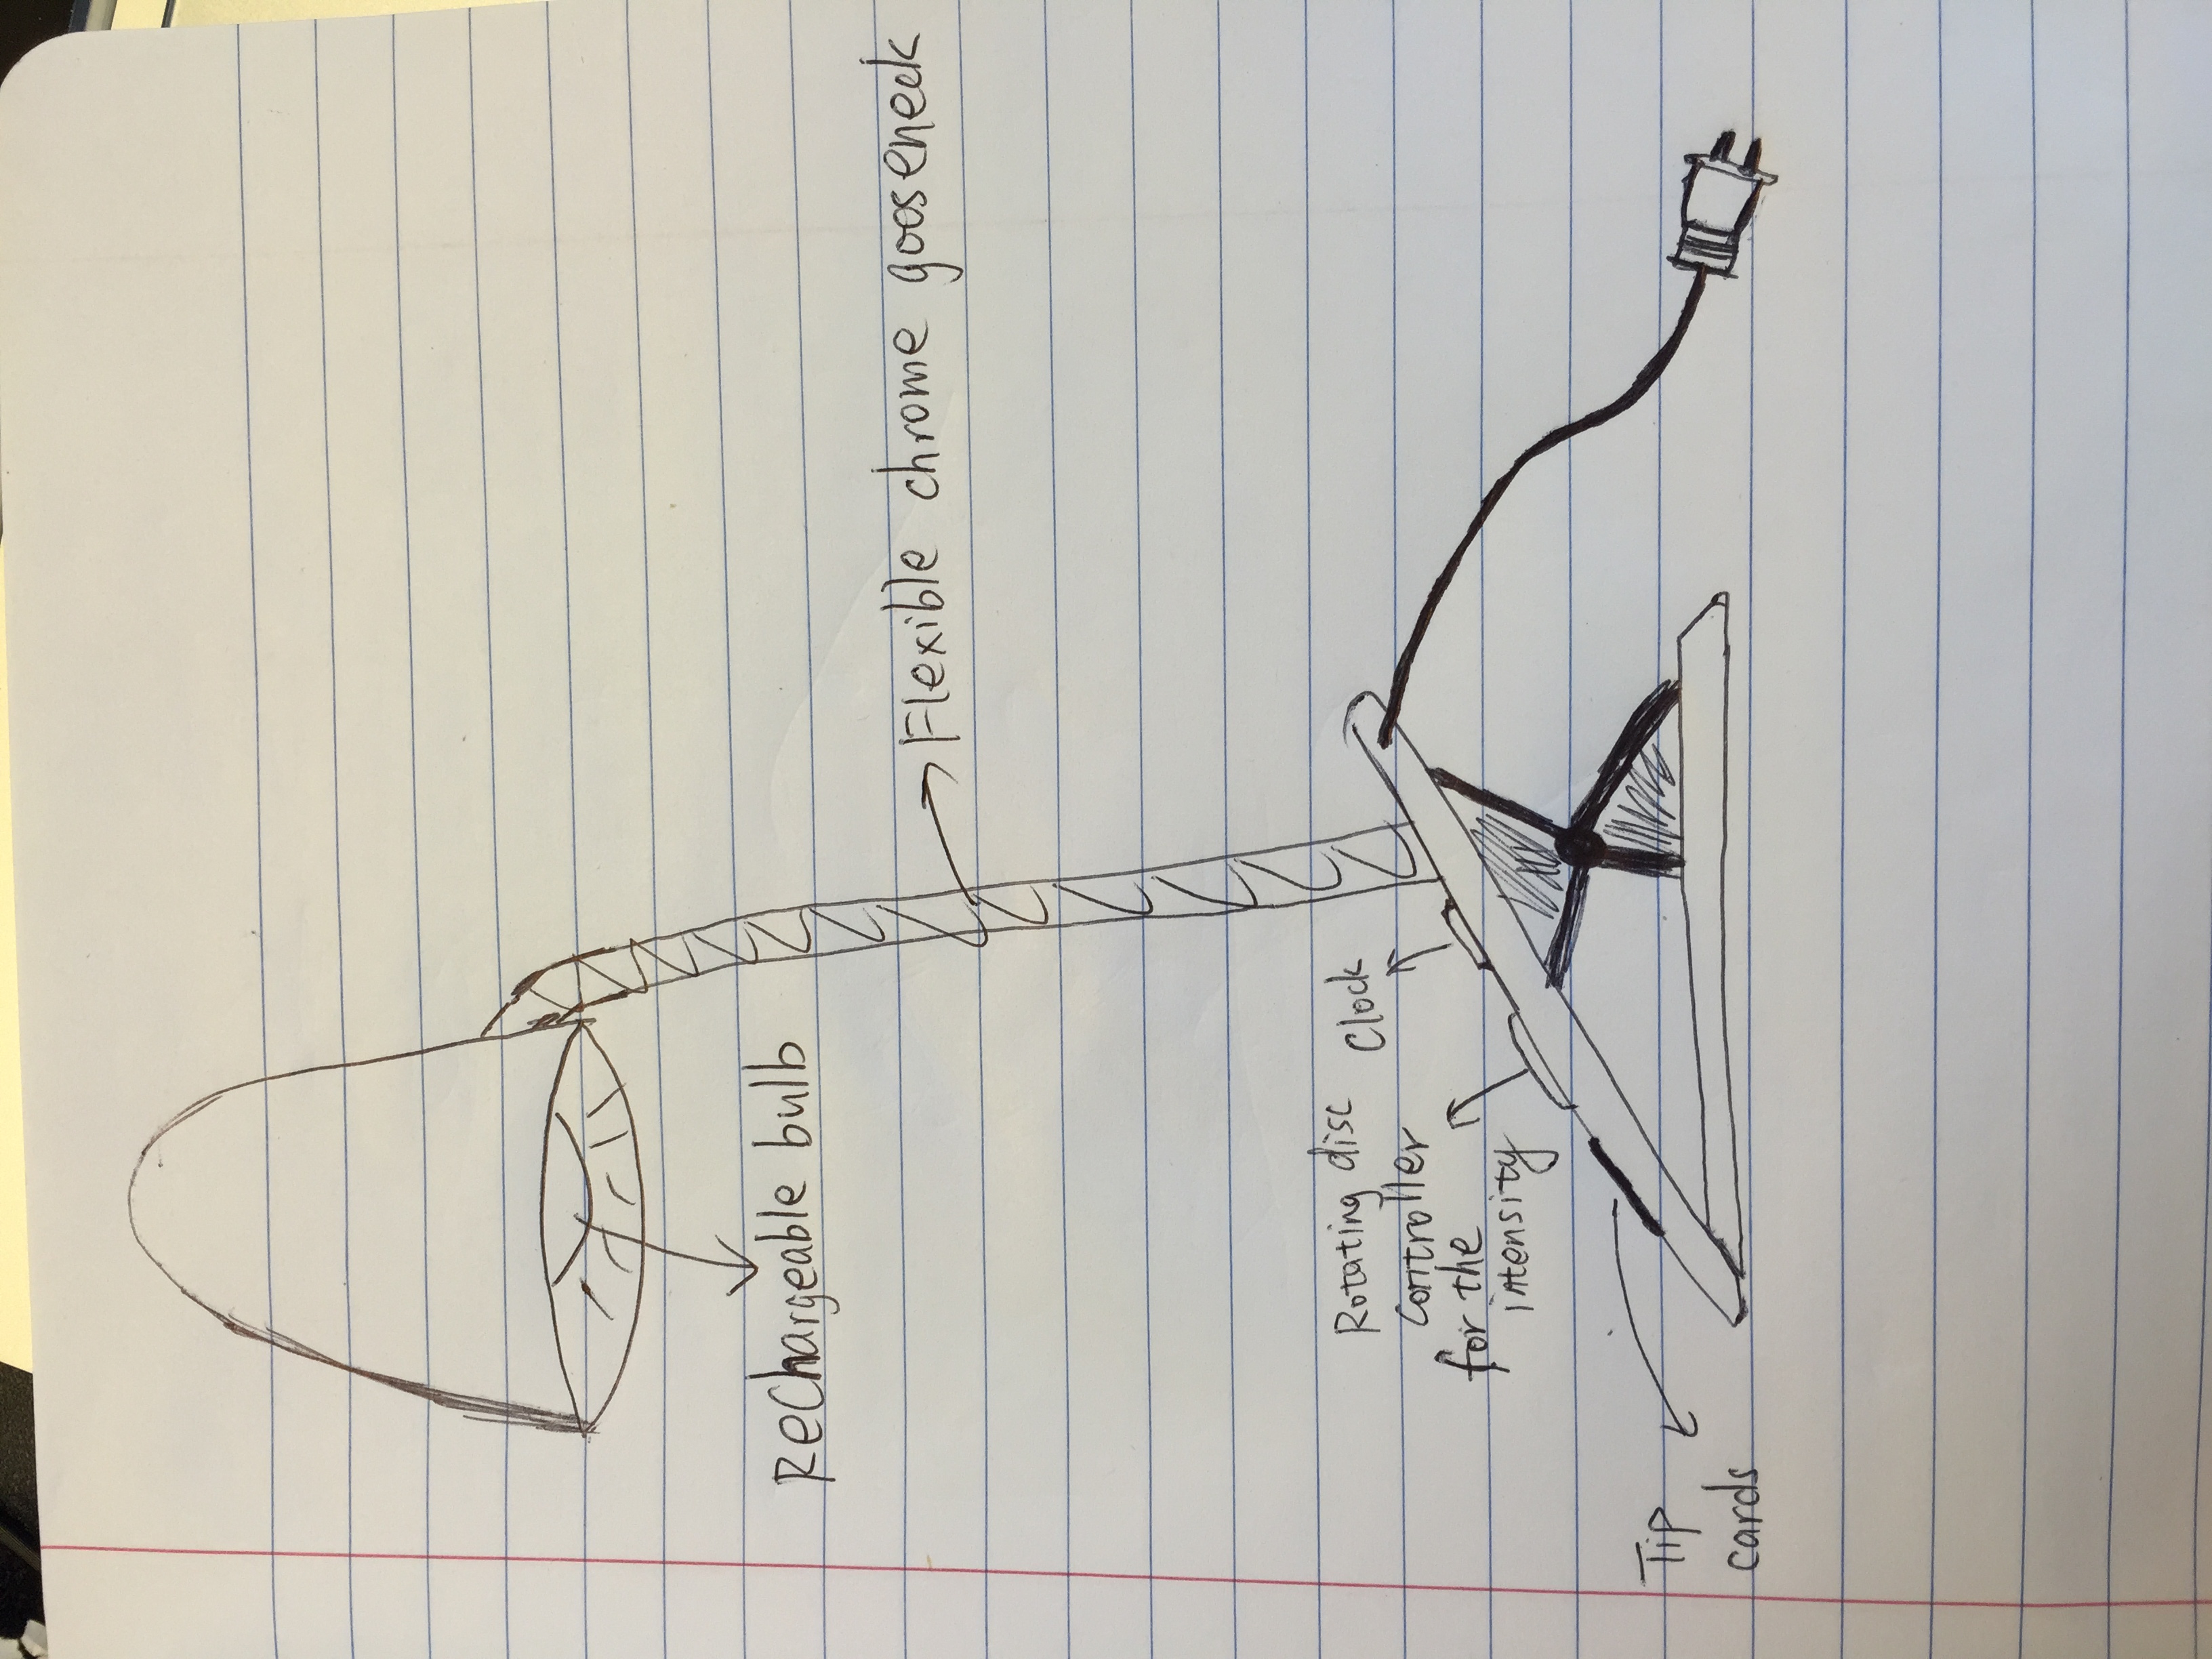 Rechargeable bulb
Flexible chrome gooseneck
Rotating disc
controller
for the
intensity
Clock
Tip
cards